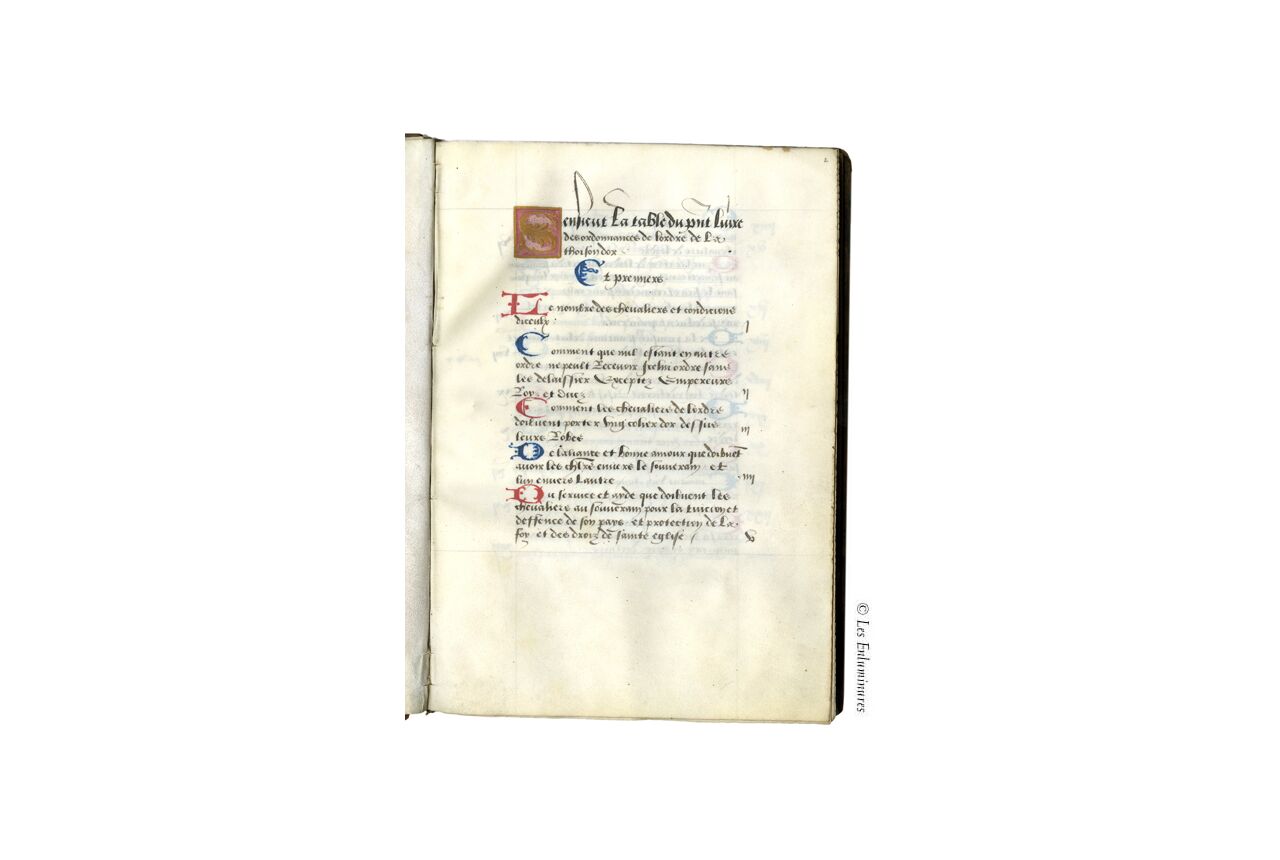 2
Sensieut La table du pnt Liure
des ordonnances de lordre de La
thoison dor
Et premiers
Le nombre des cheualiers et condicions
diceulx : I
Comment que nul estant en autre
ordre ne peult Receuoir Icelui ordre sans
les delaissier Exceptez Empereurs
Roys et ducz II
Comment les cheualiers de lordre
doiuent porter vng colier dor dessus III
leurs Robes
De laliance et bonne amour que doiuent
auoir les chlrs enuers le souuerain et
lun enuers Lautre IIII
Du seruice et ayde que doiuent les
cheualiers au souuerain pour la tuicion et
deffence de son pays et protection de La
foy et des droiz de sainte eglise V
© Les Enluminures